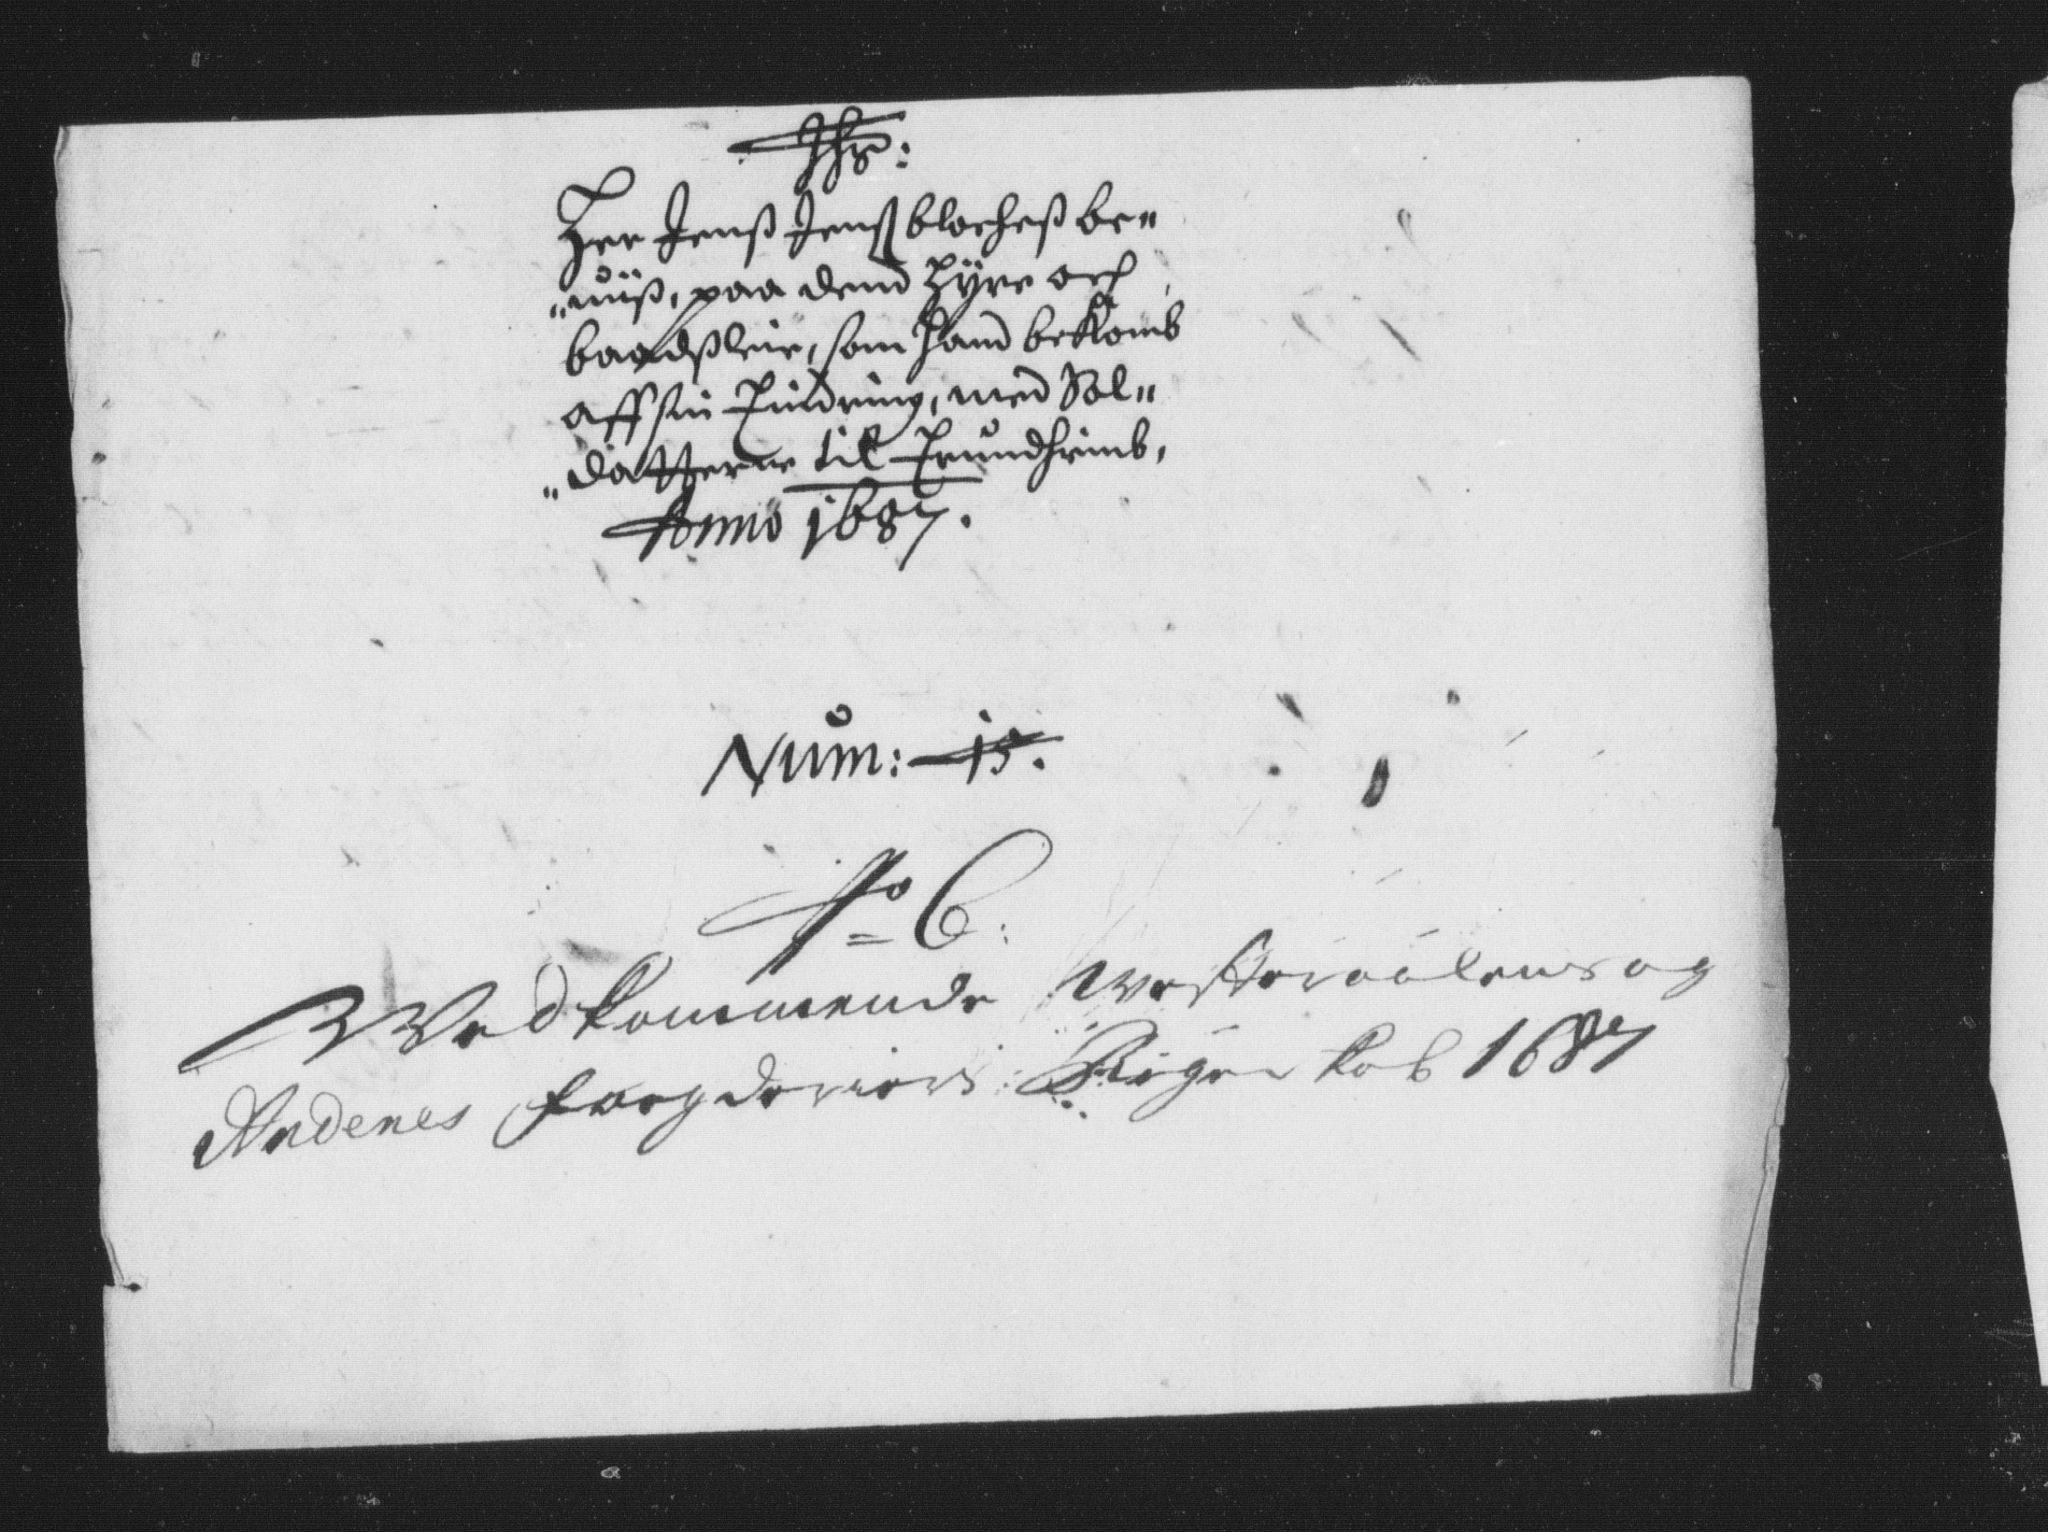 Jhs:
Her Jenß Jenß blocheß be„
„uiiß, paa dend Hÿre och
baadßleie, som hand bekomb
aff sin Pindring, med Sol„
„datterne til Trundhimb,
Anno 1687.
Num: 15.
No 6:
Wedkommende Westeraalens og
Andenes fougderiers Regenskab 1687